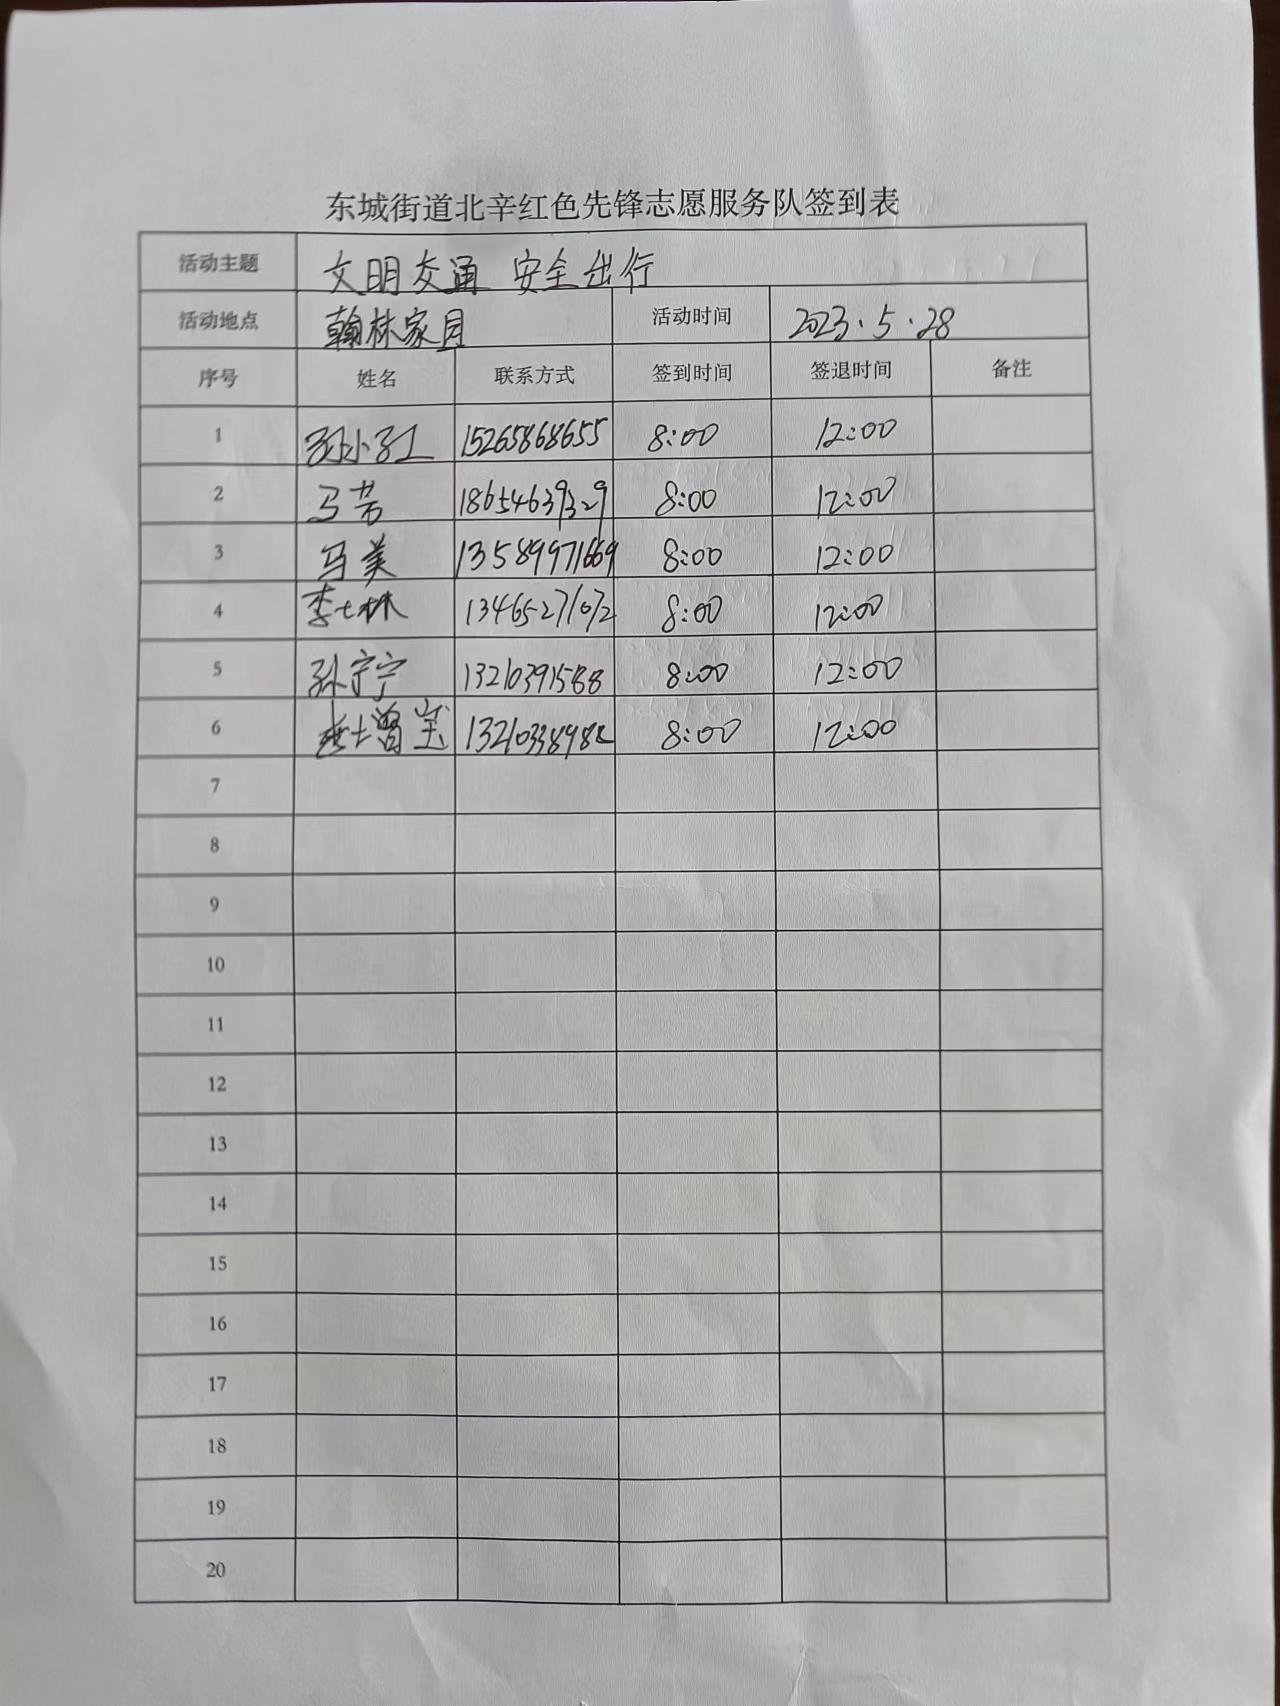 东城街道北辛红色先锋志愿服务队签到表
活动主题 文明交通 安全出行
活动地点 翰林家园 活动时间 2023.5.28
序号 姓名 联系方式 签到时间 签退时间 备注
1 孙小红 15265868655 8:00 12:00
2 马芳 18654639329 8:00 12:00
3 马美 13589971669 8:00 12:00
4 李七林 13465271072 8:00 12:00
5 孙宁宁 13210391588 8:00 12:00
6 8:00 12:00
7
8
9
10
11
12
13
14
15
16
17
18
19
20